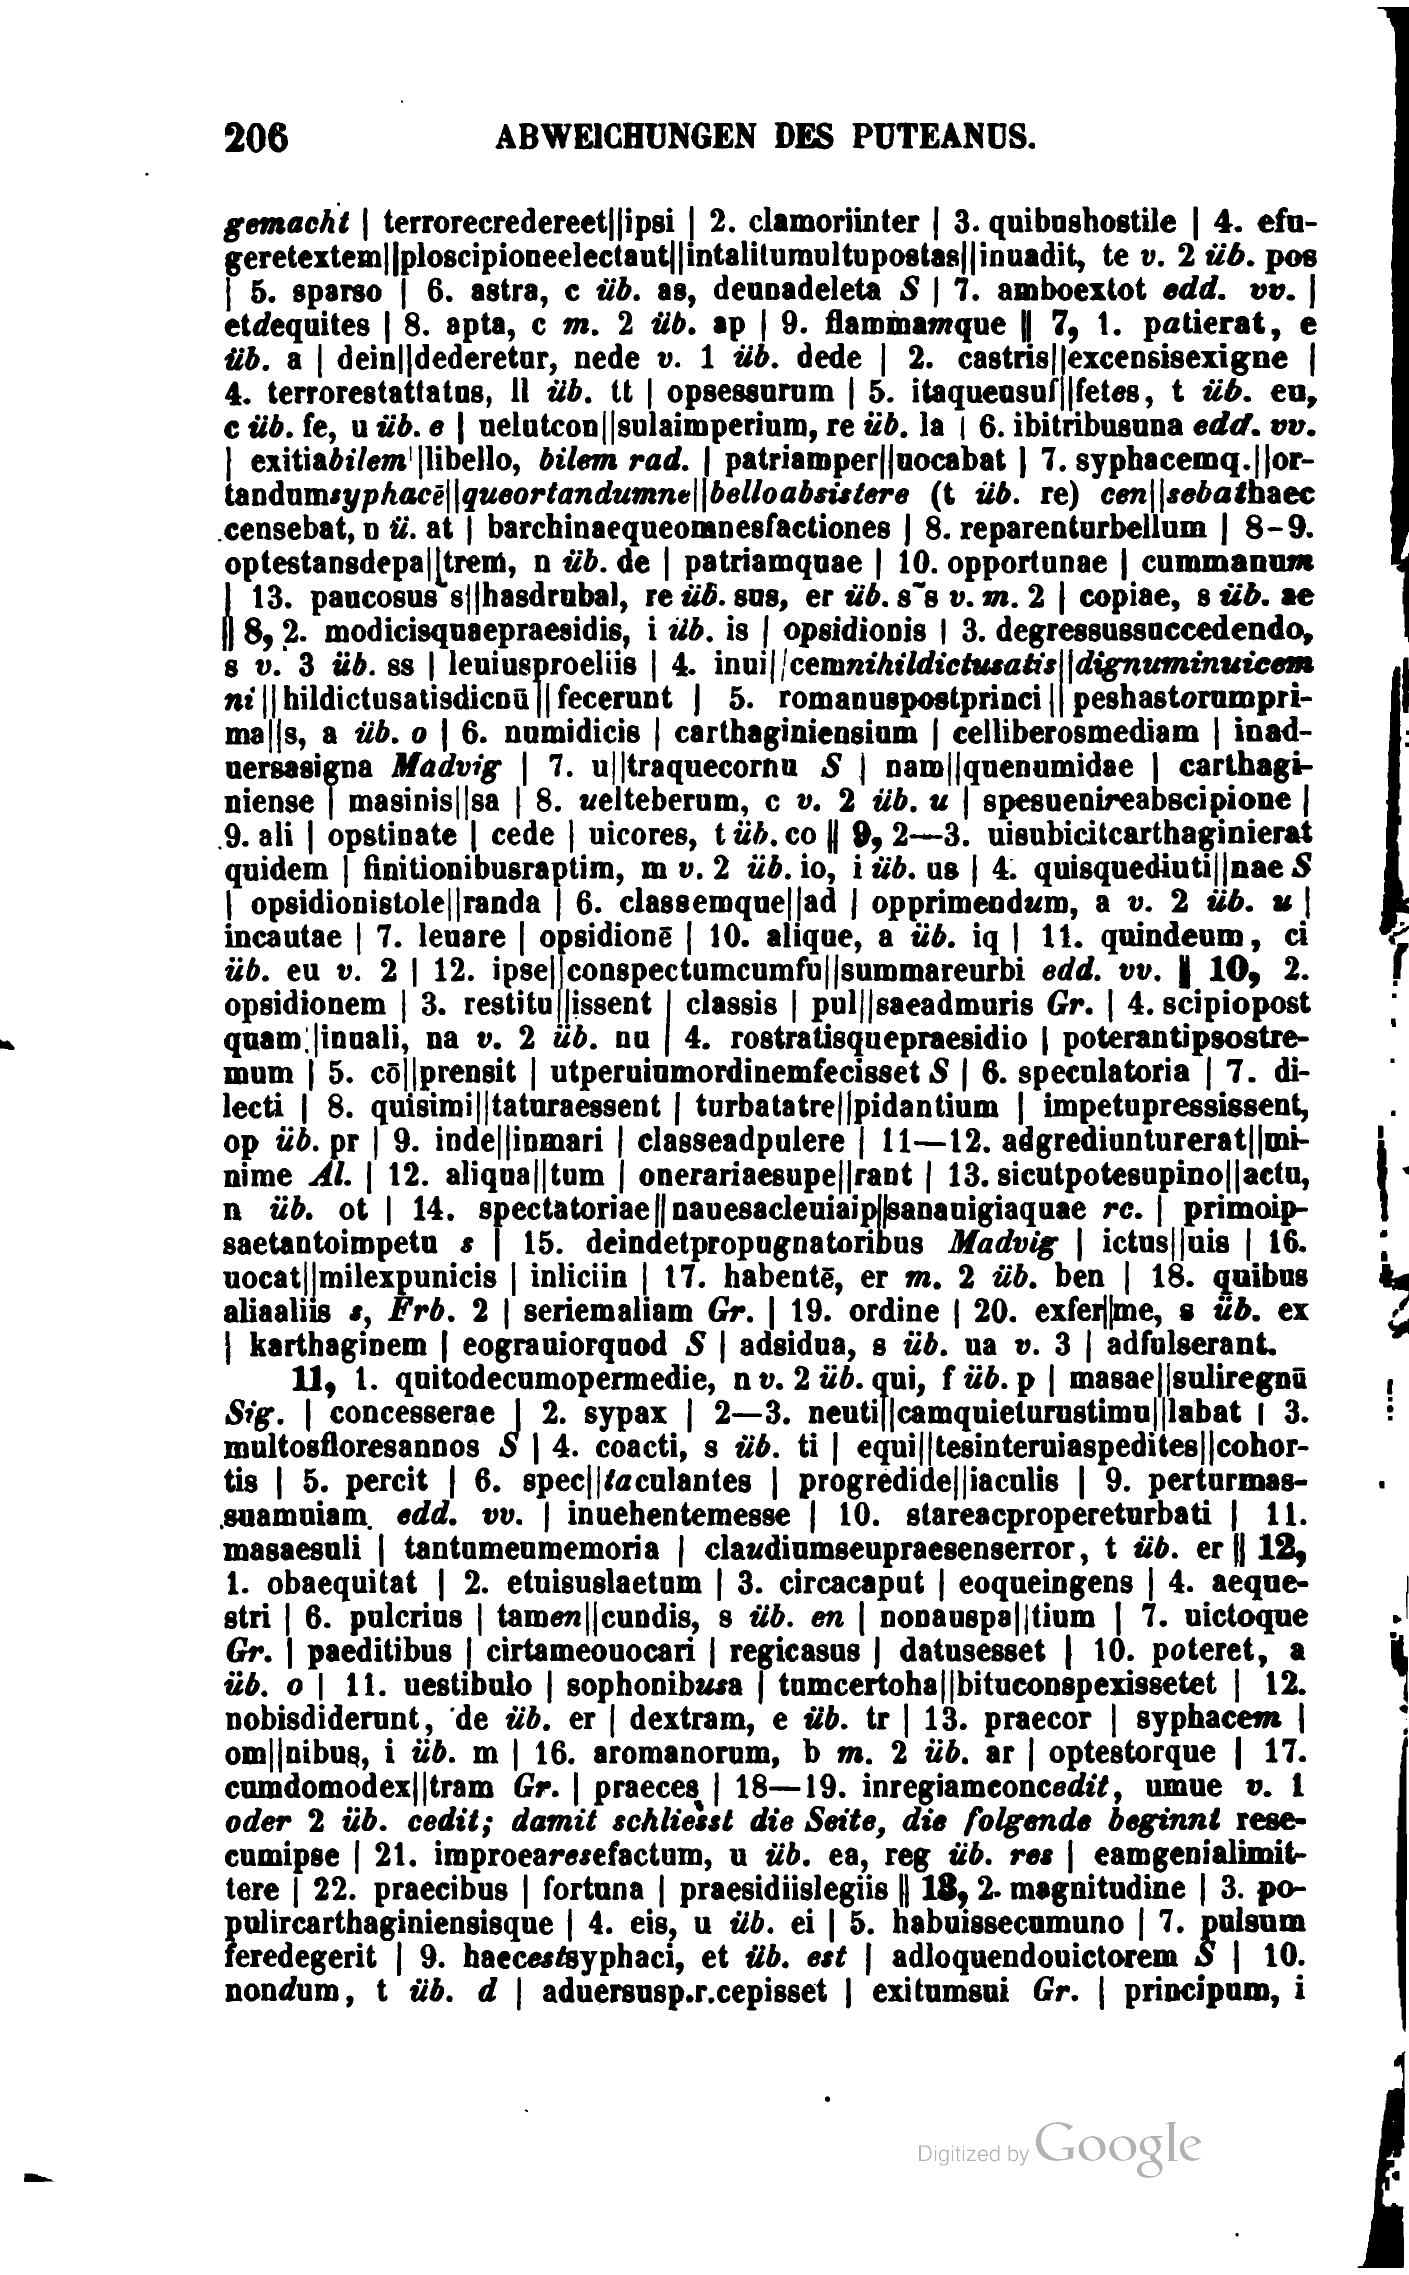 206 ABWEICHUNGEN DES PUTEANUS.
gemacht | terrorecredereet||ipsi | 2. clamoriinter | 3. quibushostile | 4. efu-
geretextem||ploscipioneelectaut||intalitumultupostas||inuadit, te v. 2 üb. pos
| 5. sparso | 6. astra, c üb. as, deunadeleta S | 7. amboextot edd. vv. |
etdequites | 8. apta, c m. 2 üb. ap | 9. flammamque || 7, 1. patierat, e
üb. a | dein||dederetur, nede v. 1 üb. dede | 2. castris||excensisexigne |
4. terrorestattatus, ll üb. tt | opsessurum | 5. itaqueusuf||fetes, t üb. eu,
c üb. fe, u üb. e | uelutcon||sulaimperium, re üb. la | 6. ibitribusuna edd. vv.
| exitiabilem||libello, bilem rad. | patriamper||uocabat | 7. syphacemq.||or-
tandumsyphacē||queortandumne||belloabsistere (t üb. re) cen||sebathaec
censebat, n ü. at | barchinaequeomnesfactiones | 8. reparenturbellum | 8-9.
optestansdepa||trem, n üb. de | patriamquae | 10. opportunae | cummanum
| 13. paucosus s||hasdrubal, re üb. sus, er üb. s~s v. m. 2 | copiae, s üb. ae
|| 8, 2. modicisquaepraesidis, i üb. is | opsidionis | 3. degressussuccedendo,
s v. 3 üb. ss | leuiusproeliis | 4. inui||cemnihildictusatis||dignuminuicem
ni||hildictusatisdicnū||fecerunt | 5. romanuspostprinci||peshastorumpri-
ma||s, a üb. o | 6. numidicis | carthaginiensium | celliberosmediam | inad-
uersasigna Madvig | 7. u||traquecornu S | nam||quenumidae | carthagi-
niense | masinis||sa | 8. uelteberum, c v. 2 üb. u | spesuenireabscipione |
9. ali | opstinate | cede | uicores, t üb. co || 9, 2—3. uisubicitcarthaginierat
quidem | finitionibusraptim, m v. 2 üb. io, i üb. us | 4. quisquediuti||nae S
| opsidionistole||randa | 6. classemque||ad | opprimendum, a v. 2 üb. u |
incautae | 7. leuare | opsidionē | 10. alique, a üb. iq | 11. quindeum, ci
üb. eu v. 2 | 12. ipse||conspectumcumfu||summareurbi edd. vv. || 10, 2.
opsidionem | 3. restitu||issent | classis | pul||saeadmuris Gr. | 4. scipiopost
quam||inuali, na v. 2 üb. nu | 4. rostratisquepraesidio | poterantipsostre-
mum | 5. cō||prensit | utperuiumordinemfecisset S | 6. speculatoria | 7. di-
lecti | 8. quisimi||taturaessent | turbatatre||pidantium | impetupressissent,
op üb. pr | 9. inde||inmari | classeadpulere | 11—12. adgrediunturerat||mi-
nime Al. | 12. aliqua||tum | onerariaesupe||rant | 13. sicutpotesupino||actu,
n üb. ot | 14. spectatoriae||nauesacleuiaip||sanauigiaquae rc. | primoip-
saetantoimpetu s | 15. deindetpropugnatoribus Madvig | ictus||uis | 16.
uocat||milexpunicis | inliciin | 17. habentē, er m. 2 üb. ben | 18. quibus
aliaaliis s, Frb. 2 | seriemaliam Gr. | 19. ordine | 20. exfer||me, s üb. ex
| karthaginem | eograuiorquod S | adsidua, s üb. ua v. 3 | adfulserant.
11, 1. quitodecumopermedie, n v. 2 üb. qui, f üb. p | masae||suliregnū
Sig. | concesserae | 2. sypax | 2—3. neuti||camquieturustimu||labat | 3.
multosfloresannos S | 4. coacti, s üb. ti | equi||tesinteruiaspedites||cohor-
tis | 5. percit | 6. spec||taculantes | progredide||iaculis | 9. perturmas-
suamuiam edd. vv. | inuehentemesse | 10. stareacpropereturbati | 11.
masaesuli | tantumeumemoria | claudiumseupraesenserror, t üb. er || 12,
1. obaequitat | 2. etuisuslaetum | 3. circacaput | eoqueingens | 4. aeque-
stri | 6. pulcrius | tamen||cundis, s üb. en | nonauspa||tium | 7. uictoque
Gr. | paeditibus | cirtameouocari | regicasus | datusesset | 10. poteret, a
üb. o | 11. uestibulo | sophonibusa | tumcertoha||bituconspexissetet | 12.
nobisdiderunt, de üb. er | dextram, e üb. tr | 13. praecor | syphacem |
om||nibus, i üb. m | 16. aromanorum, b m. 2 üb. ar | optestorque | 17.
cumdomodex||tram Gr. | praeces | 18—19. inregiamconcedit, umue v. 1
oder 2 üb. cedit; damit schliesst die Seite, die folgende beginnt rese-
cumipse | 21. improearesefactum, u üb. ea, reg üb. res | eamgenialimit-
tere | 22. praecibus | fortuna | praesidiislegiis || 13, 2. magnitudine | 3. po-
pulircarthaginiensisque | 4. eis, u üb. ei | 5. habuissecumuno | 7. pulsum
feredegerit | 9. haecestsyphaci, et üb. est | adloquendouictorem S | 10.
nondum, t üb. d | aduersusp.r.cepisset | exitumsui Gr. | principum, i
Digitized by Google